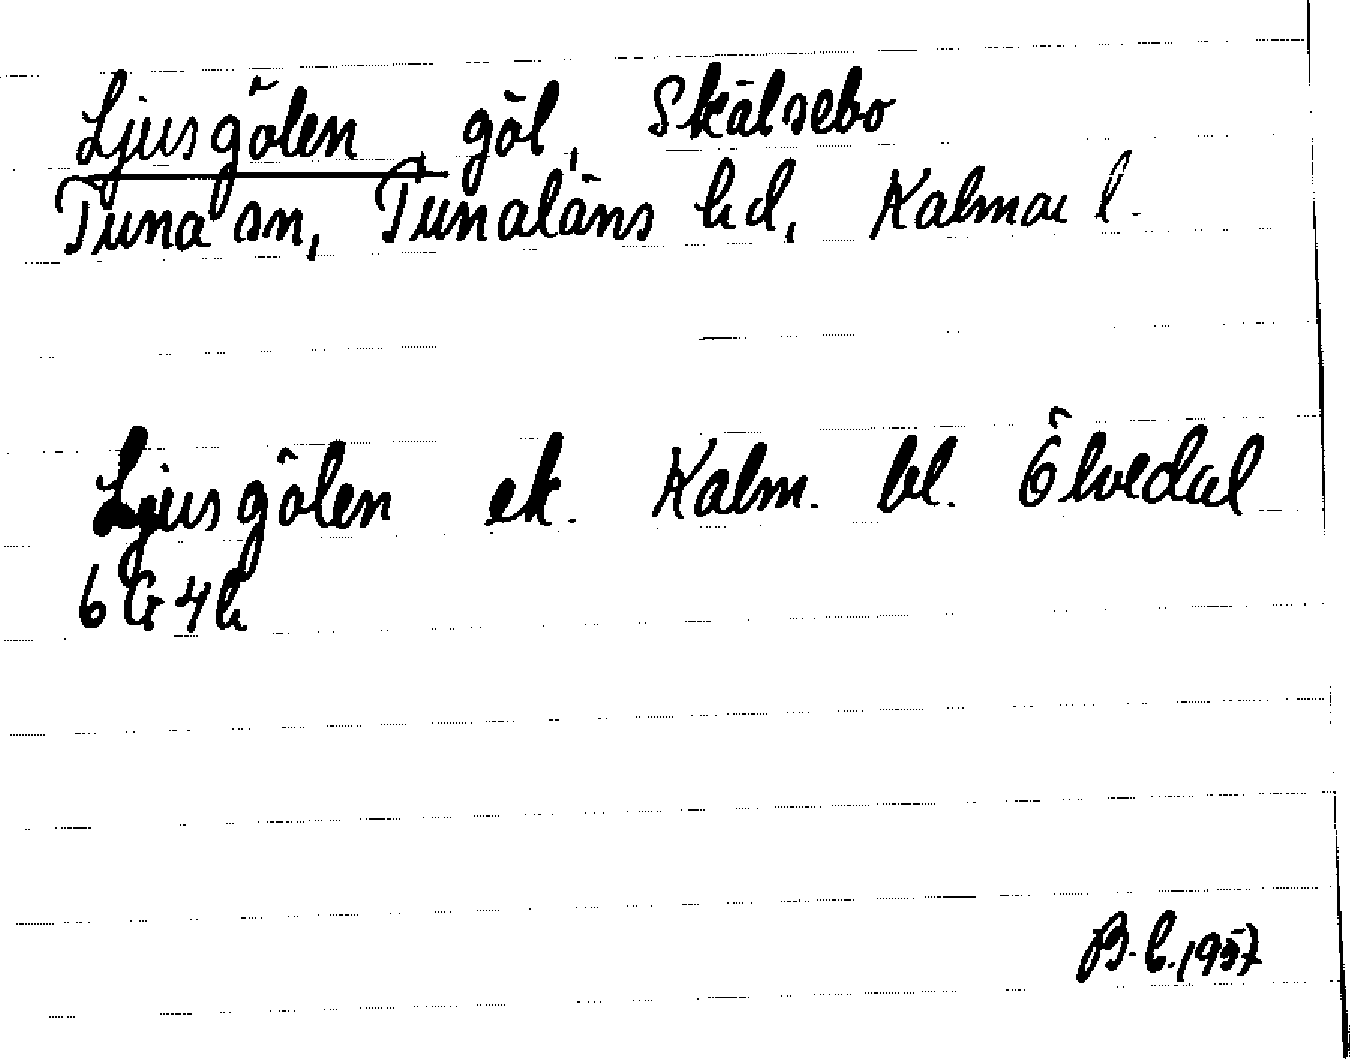 Ljusgölen, göl, Skälsebo
Tuna sn, Tunaläns hd, Kalmar l.
Ljusgölen ek. Kalm. bl. Ölvedal
6 G 4 h
B. C. 1957